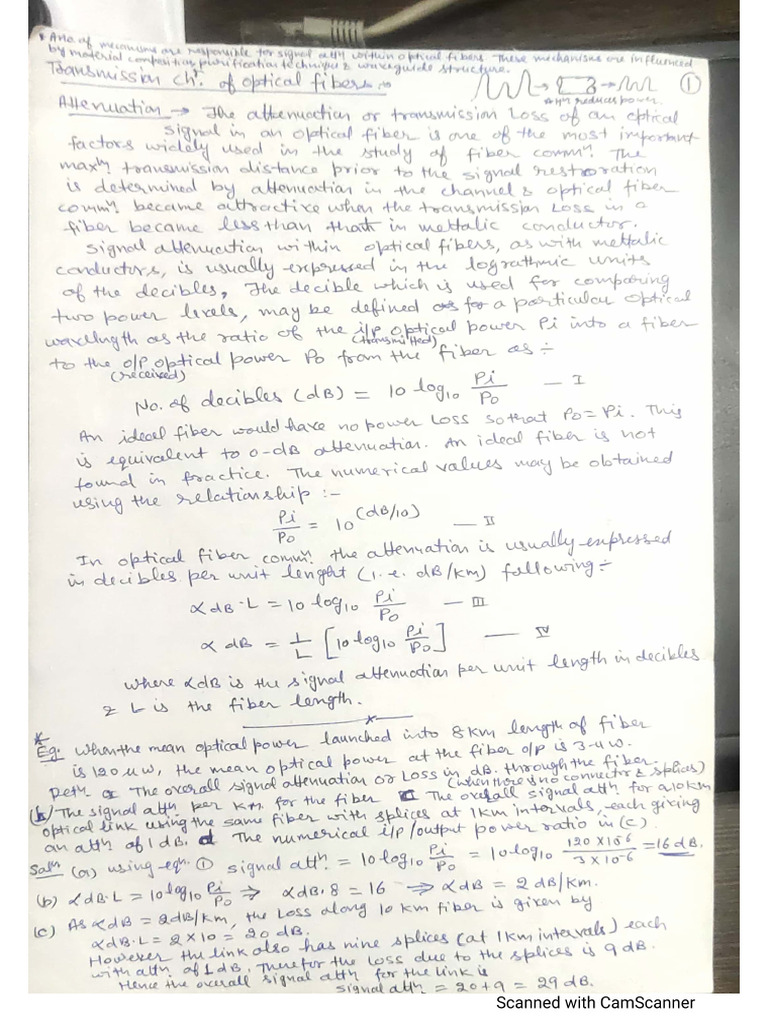 * A no. of mecanisms are responsible for signal attⁿ within optical fibers These mechanisms are influenced
by material composition, purification technique & waveguide structure.
Transmission chʳ. of optical fibers :→
①
attⁿ reduces power.
Attenuation → The attenuation or transmission Loss of an optical
signal in an optical fiber is one of the most important
factors widely used in the study of fiber commⁿ. The
maxᵐ. transmission distance prior to the signal restroration
is determined by attenuation in the channel & optical fiber
commⁿ. became attractive when the transmission Loss in a
fiber became less than that in mettalic conductor.
Signal attenuation within optical fibers, as with mettalic
conductors, is usually expressed in the lograthmic units
of the decibles, The decible which is used for comparing
two power levels, may be defined as for a particular optical
wavelength as the ratio of the i/p optical power Pi into a fiber
(transmitted)
to the o/p optical power Po from the fiber as ÷
(received)
No. of decibles (dB) = 10 log₁₀ Pi/Po — I
An ideal fiber would have no power Loss so that Po = Pi. This
is equivalent to 0-dB attenuation. An ideal fiber is not
found in practice. The numerical values may be obtained
using the relationship :-
Pi/Po = 10^(dB/10) — II
In optical fiber commⁿ. the attenuation is usually expressed
in decibles per unit lenght (i.e. dB/km) following ÷
αdB·L = 10 log₁₀ Pi/Po — III
α dB = 1/L [10 log₁₀ Pi/Po] — IV
where αdB is the signal attenuation per unit length in decibles
& L is the fiber length.
* Eg: When the mean optical power launched into 8 km length of fiber
is 120 μw, the mean optical power at the fiber o/p is 3-μw.
Detⁿ a The overall signal attenuation or Loss in dB. through the fiber.
(when there is no connector & splices)
(b) The signal attⁿ per km. for the fiber c The overall signal attⁿ for a 10 km
optical link using the same fiber with splices at 1 km intervals, each giving
an attⁿ of 1 dB. d The numerical i/p / output power ratio in (c).
Solⁿ (a) using eqⁿ. ① signal attⁿ. = 10 log₁₀ Pi/Po = 10 log₁₀ 120 × 10⁻⁶/3 × 10⁻⁶ = 16 dB.
(b) αdB·L = 10 log₁₀ Pi/Po ⇒ αdB·8 = 16 ⇒ αdB = 2 dB/km.
(c) As αdB = 2dB/km, the Loss along 10 km fiber is given by
αdB·L = 2 × 10 = 20 dB.
However the link also has nine splices (at 1 km intervals) each
with attⁿ of 1 dB. Therefor the loss due to the splices is 9 dB.
Hence the overall signal attⁿ for the link is
signal attⁿ = 20 + 9 = 29 dB.
Scanned with CamScanner